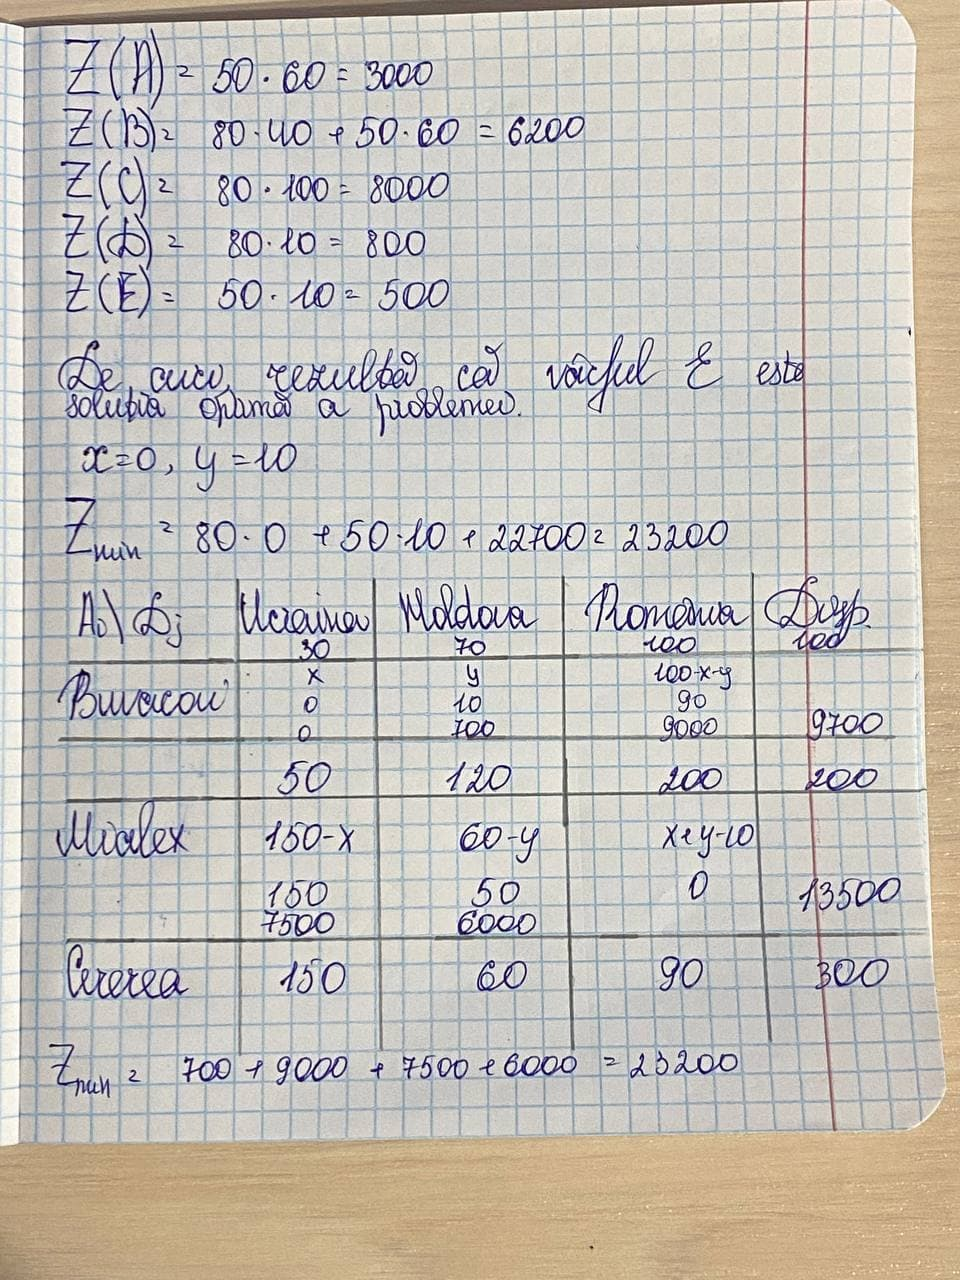 Z(A) = 50·60 = 3000
Z(B) = 80·40 + 50·60 = 6200
Z(C) = 80·100 = 8000
Z(D) = 80·10 = 800
Z(E) = 50·10 = 500
De aici, rezultă că vârful E este
soluția optimă a problemei.
x=0, y=10
Zmin = 80·0 + 50·10 + 22700 = 23200
Ai\Dj Ucraina Moldova România Disp.
30 70 100 100
x y 100-x-y
Buvacom 0 10 90
0 700 9000 9700
50 120 200 200
Mialex 150-x 60-y x+y-10
150 50 0 13500
7500 6000
Cererea 150 60 90 300
Zmin = 700 + 9000 + 7500 + 6000 = 23200